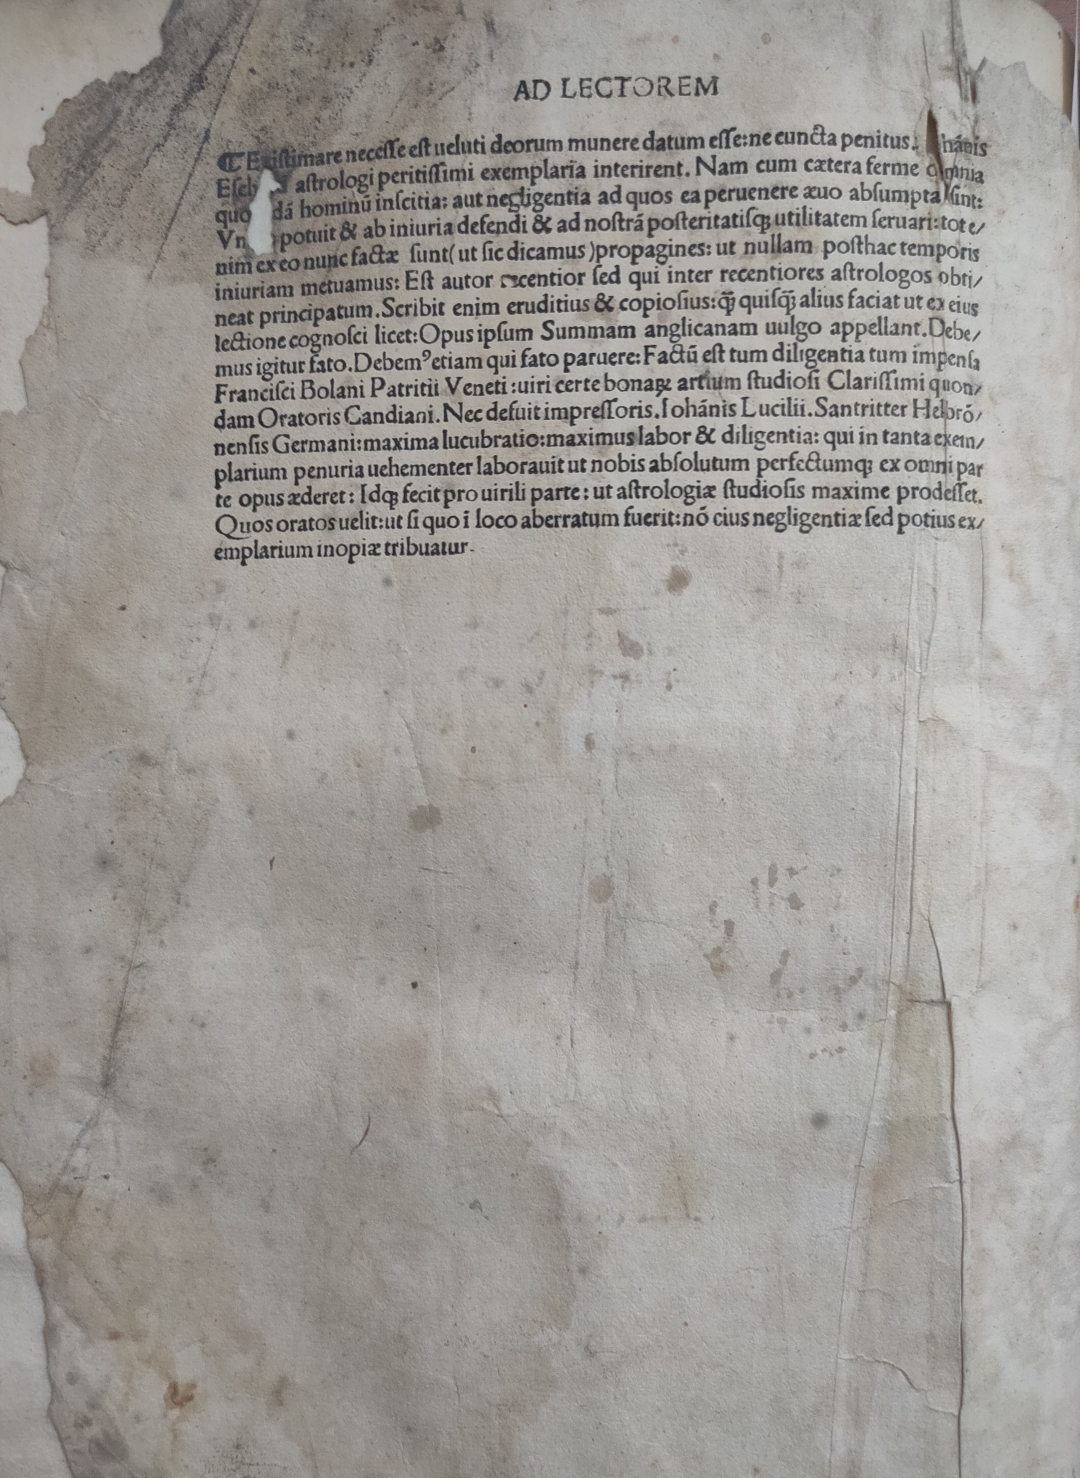 AD LECTOREM
Existimare necesse est ueluti deorum munere datum esse: ne cuncta penitus. hánis
astrologi peritissimi exemplaria interirent. Nam cum cætera ferme omnia
dá hominū inscitia: aut negligentia ad quos ea peruenere æuo absumpta sint:
potuit & ab iniuria defendi & ad nostrá posteritatisqꝫ utilitatem seruari: tot e/
nim ex eo nunc factæ sunt( ut sic dicamus )propagines: ut nullam posthac temporis
iniuriam metuamus: Est autor recentior sed qui inter recentiores astrologos obti/
neat principatum. Scribit enim eruditius & copiosius: q̄ꝫ quisq̄ꝫ alius faciat ut ex eius
lectione cognosci licet: Opus ipsum Summam anglicanam uulgo appellant. Debe/
mus igitur fato. Debemꝰ etiam qui fato paruere: Factū est tum diligentia tum impensa
Francisci Bolani Patritii Veneti: uiri certe bonaꝝ artium studiosi Clarissimi quon/
dam Oratoris Candiani. Nec defuit impressoris. Iohánis Lucilii. Santritter Helbrō/
nensis Germani: maxima lucubratio: maximus labor & diligentia: qui in tanta exem/
plarium penuria uehementer laborauit ut nobis absolutum perfectumqꝫ ex omni par
te opus æderet: Idqꝫ fecit pro uirili parte: ut astrologiæ studiosis maxime prodesset.
Quos oratos uelit: ut si quo ī loco aberratum fuerit: nō eius negligentiæ sed potius ex/
emplarium inopiæ tribuatur.